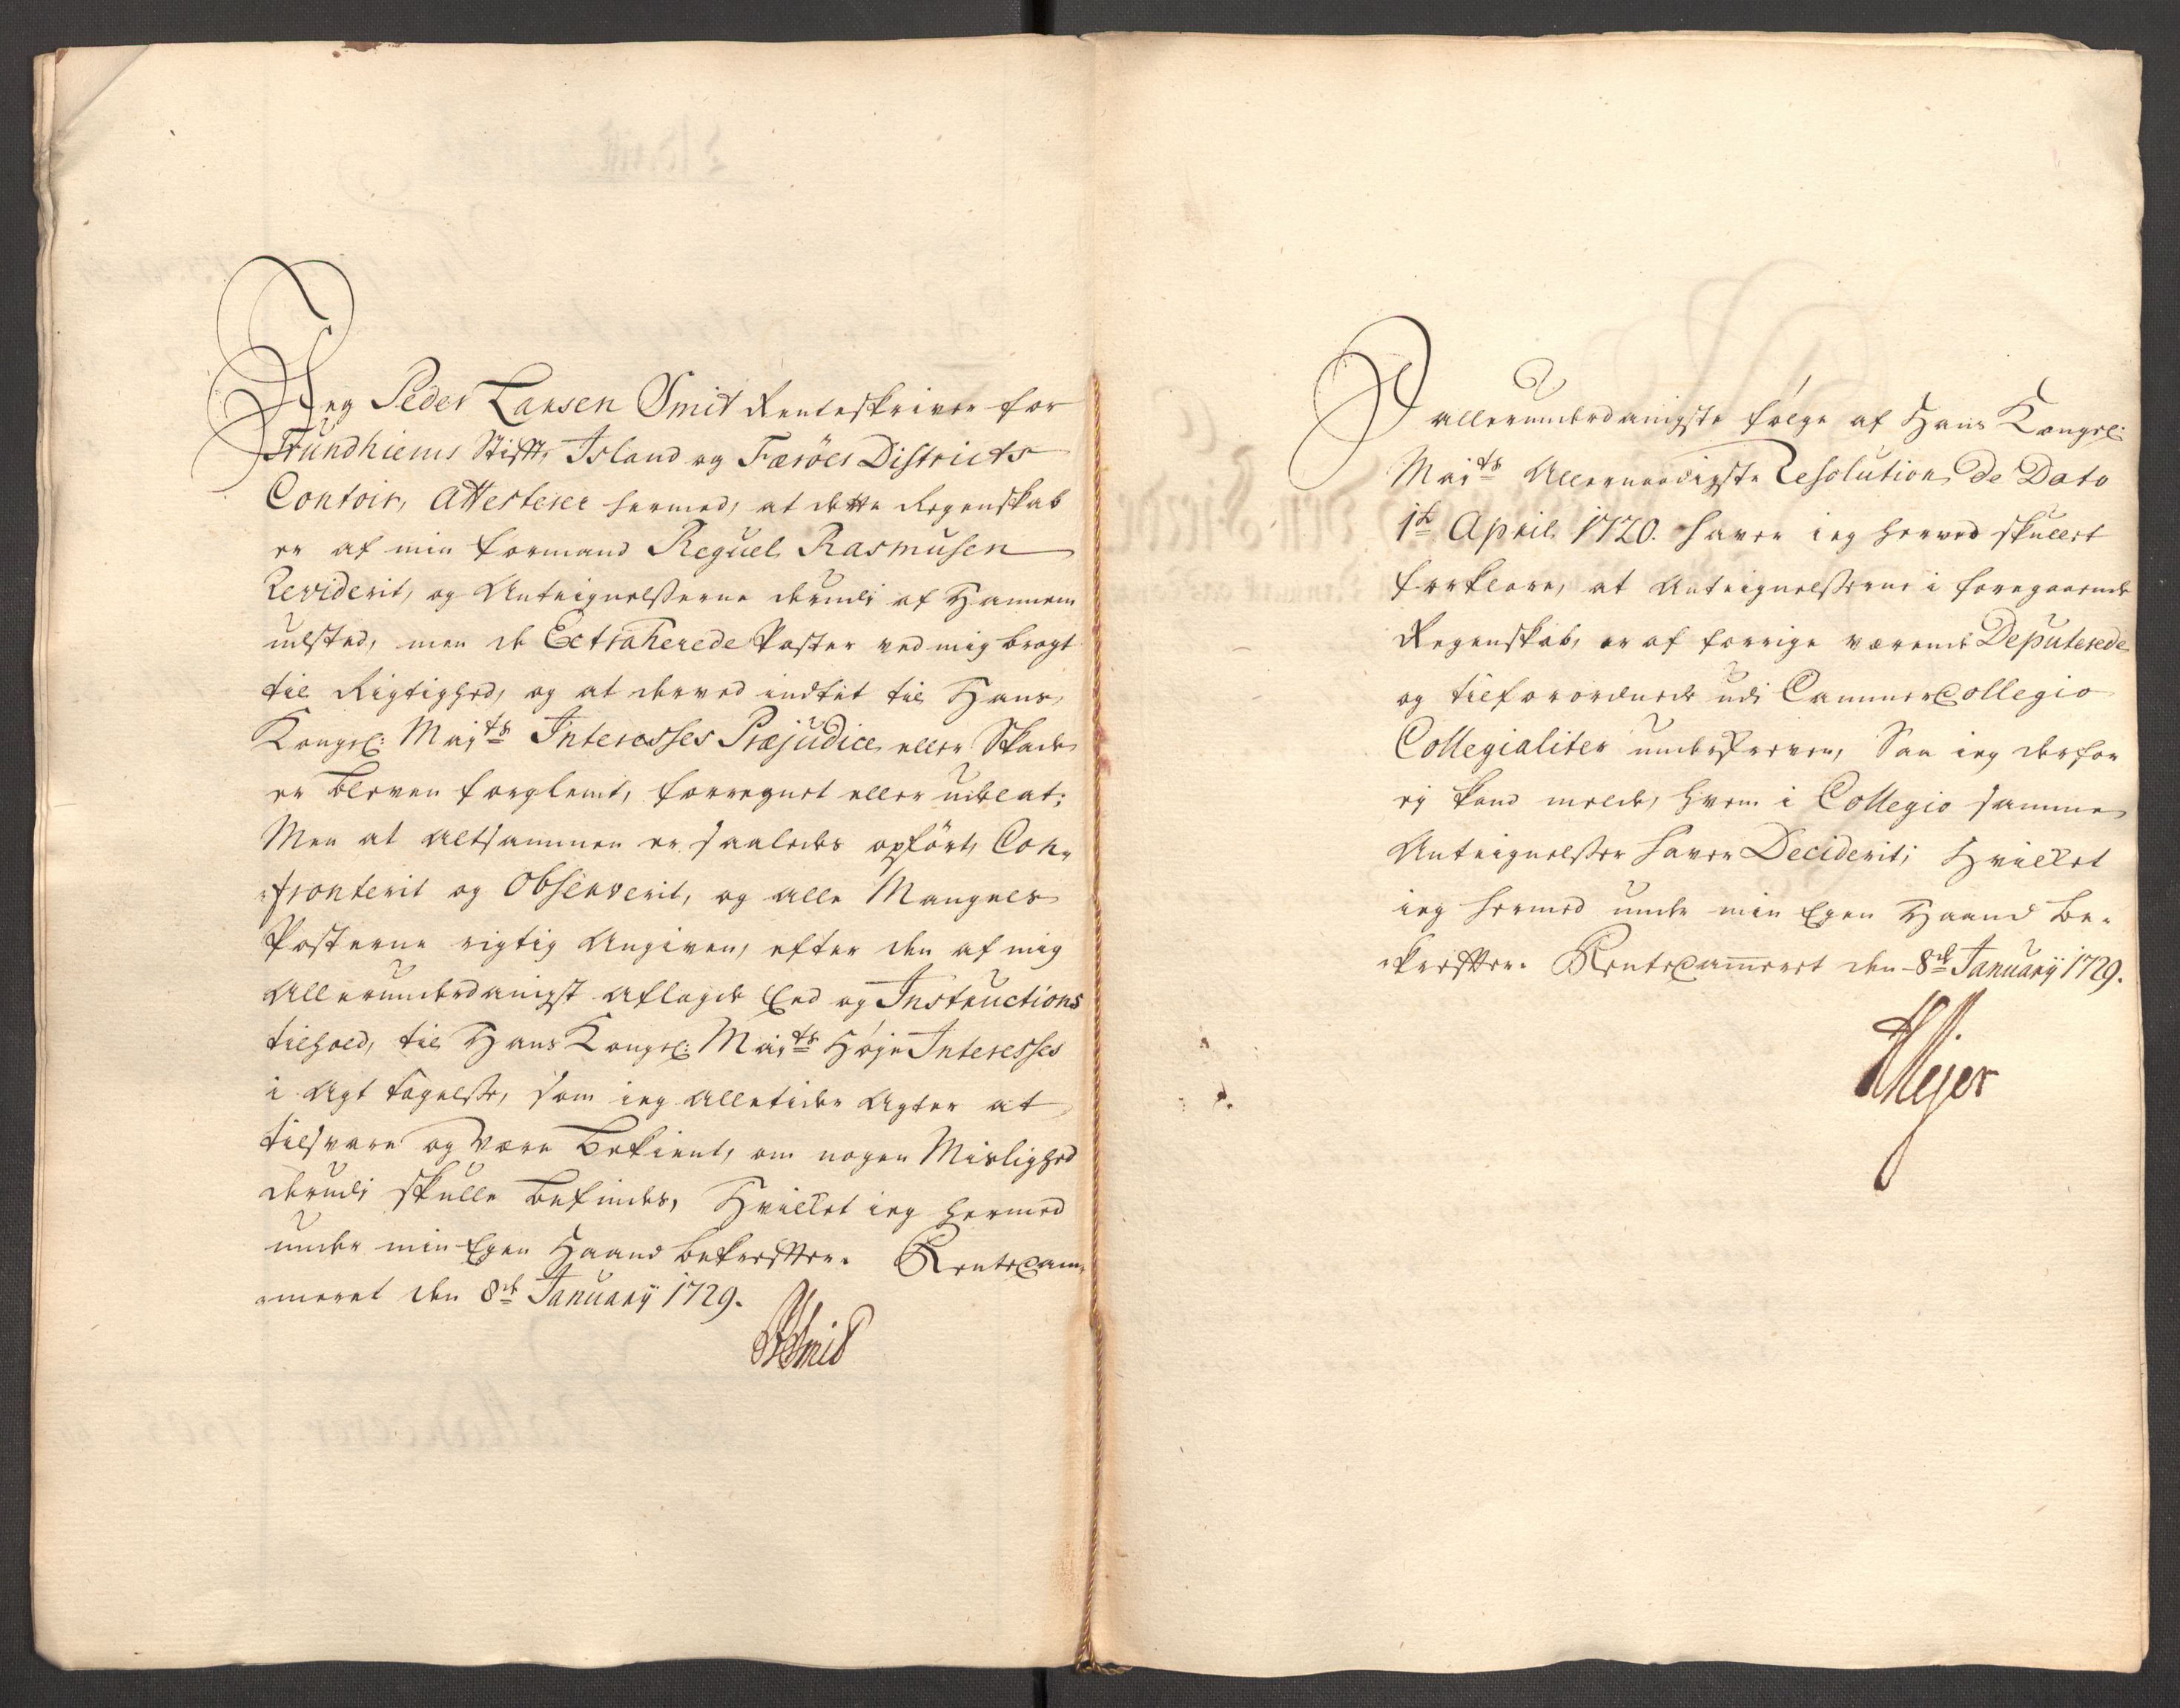 Jeg Peder Larsen Smit Renteskriver for
Trundhiems Stifft, Island og Færöes Districts
Contoir, Attesterer hermed, at dette Regenskab
er af min formand Reguel Rasmusen
Reviderit, og Anteignelsserne derudi af Hannem
udsted, men de Extraherede Poster ved mig bragt
til Rigtighed, og at derved indtet til Hans
Kongel: Maj.ts Interesses Præjudice eller Skade
er bleven forglemt, forregnet eller udelat;
Men at altsammen er saaledes opfört, Con-
-fronterit og Observerit, og alle Mangels
Posterne rigtig Angiven, efter den af mig
Allerunderdanigst aflagde Eed og Instructions
tilhold, til Hans Kongel: Maj.ts Høje Interesses
i agt tagelsse, som ieg alletider Agter at
tilsvare og være bekient, om nogen Mislighed
derudi skulle befindes, Hvilket ieg hermed
under min Egen Haand bekreffter. RenteCam-
-meret den 8de Januarij 1729.
PLSmid
I allerunderdanigste følge af Hans Kongel:
Maj.ts Allernaadigste Resolution de Dato
1ste April 1720. haver ieg herved skullet
forklare, at Anteignelsserne i foregaaende
Regenskab, er af forrige værende Deputerede
og tilforordnede udi CammerCollegio
Collegialiter underskreven, Saa ieg derfor
ej kand melde, hvem i Collegio samme
Anteignelsser haver Deciderit; Hvilket
ieg hermed under min Egen Haand be-
-kreffter. RenteCammeret den 8de Januarij 1729.
Mejer